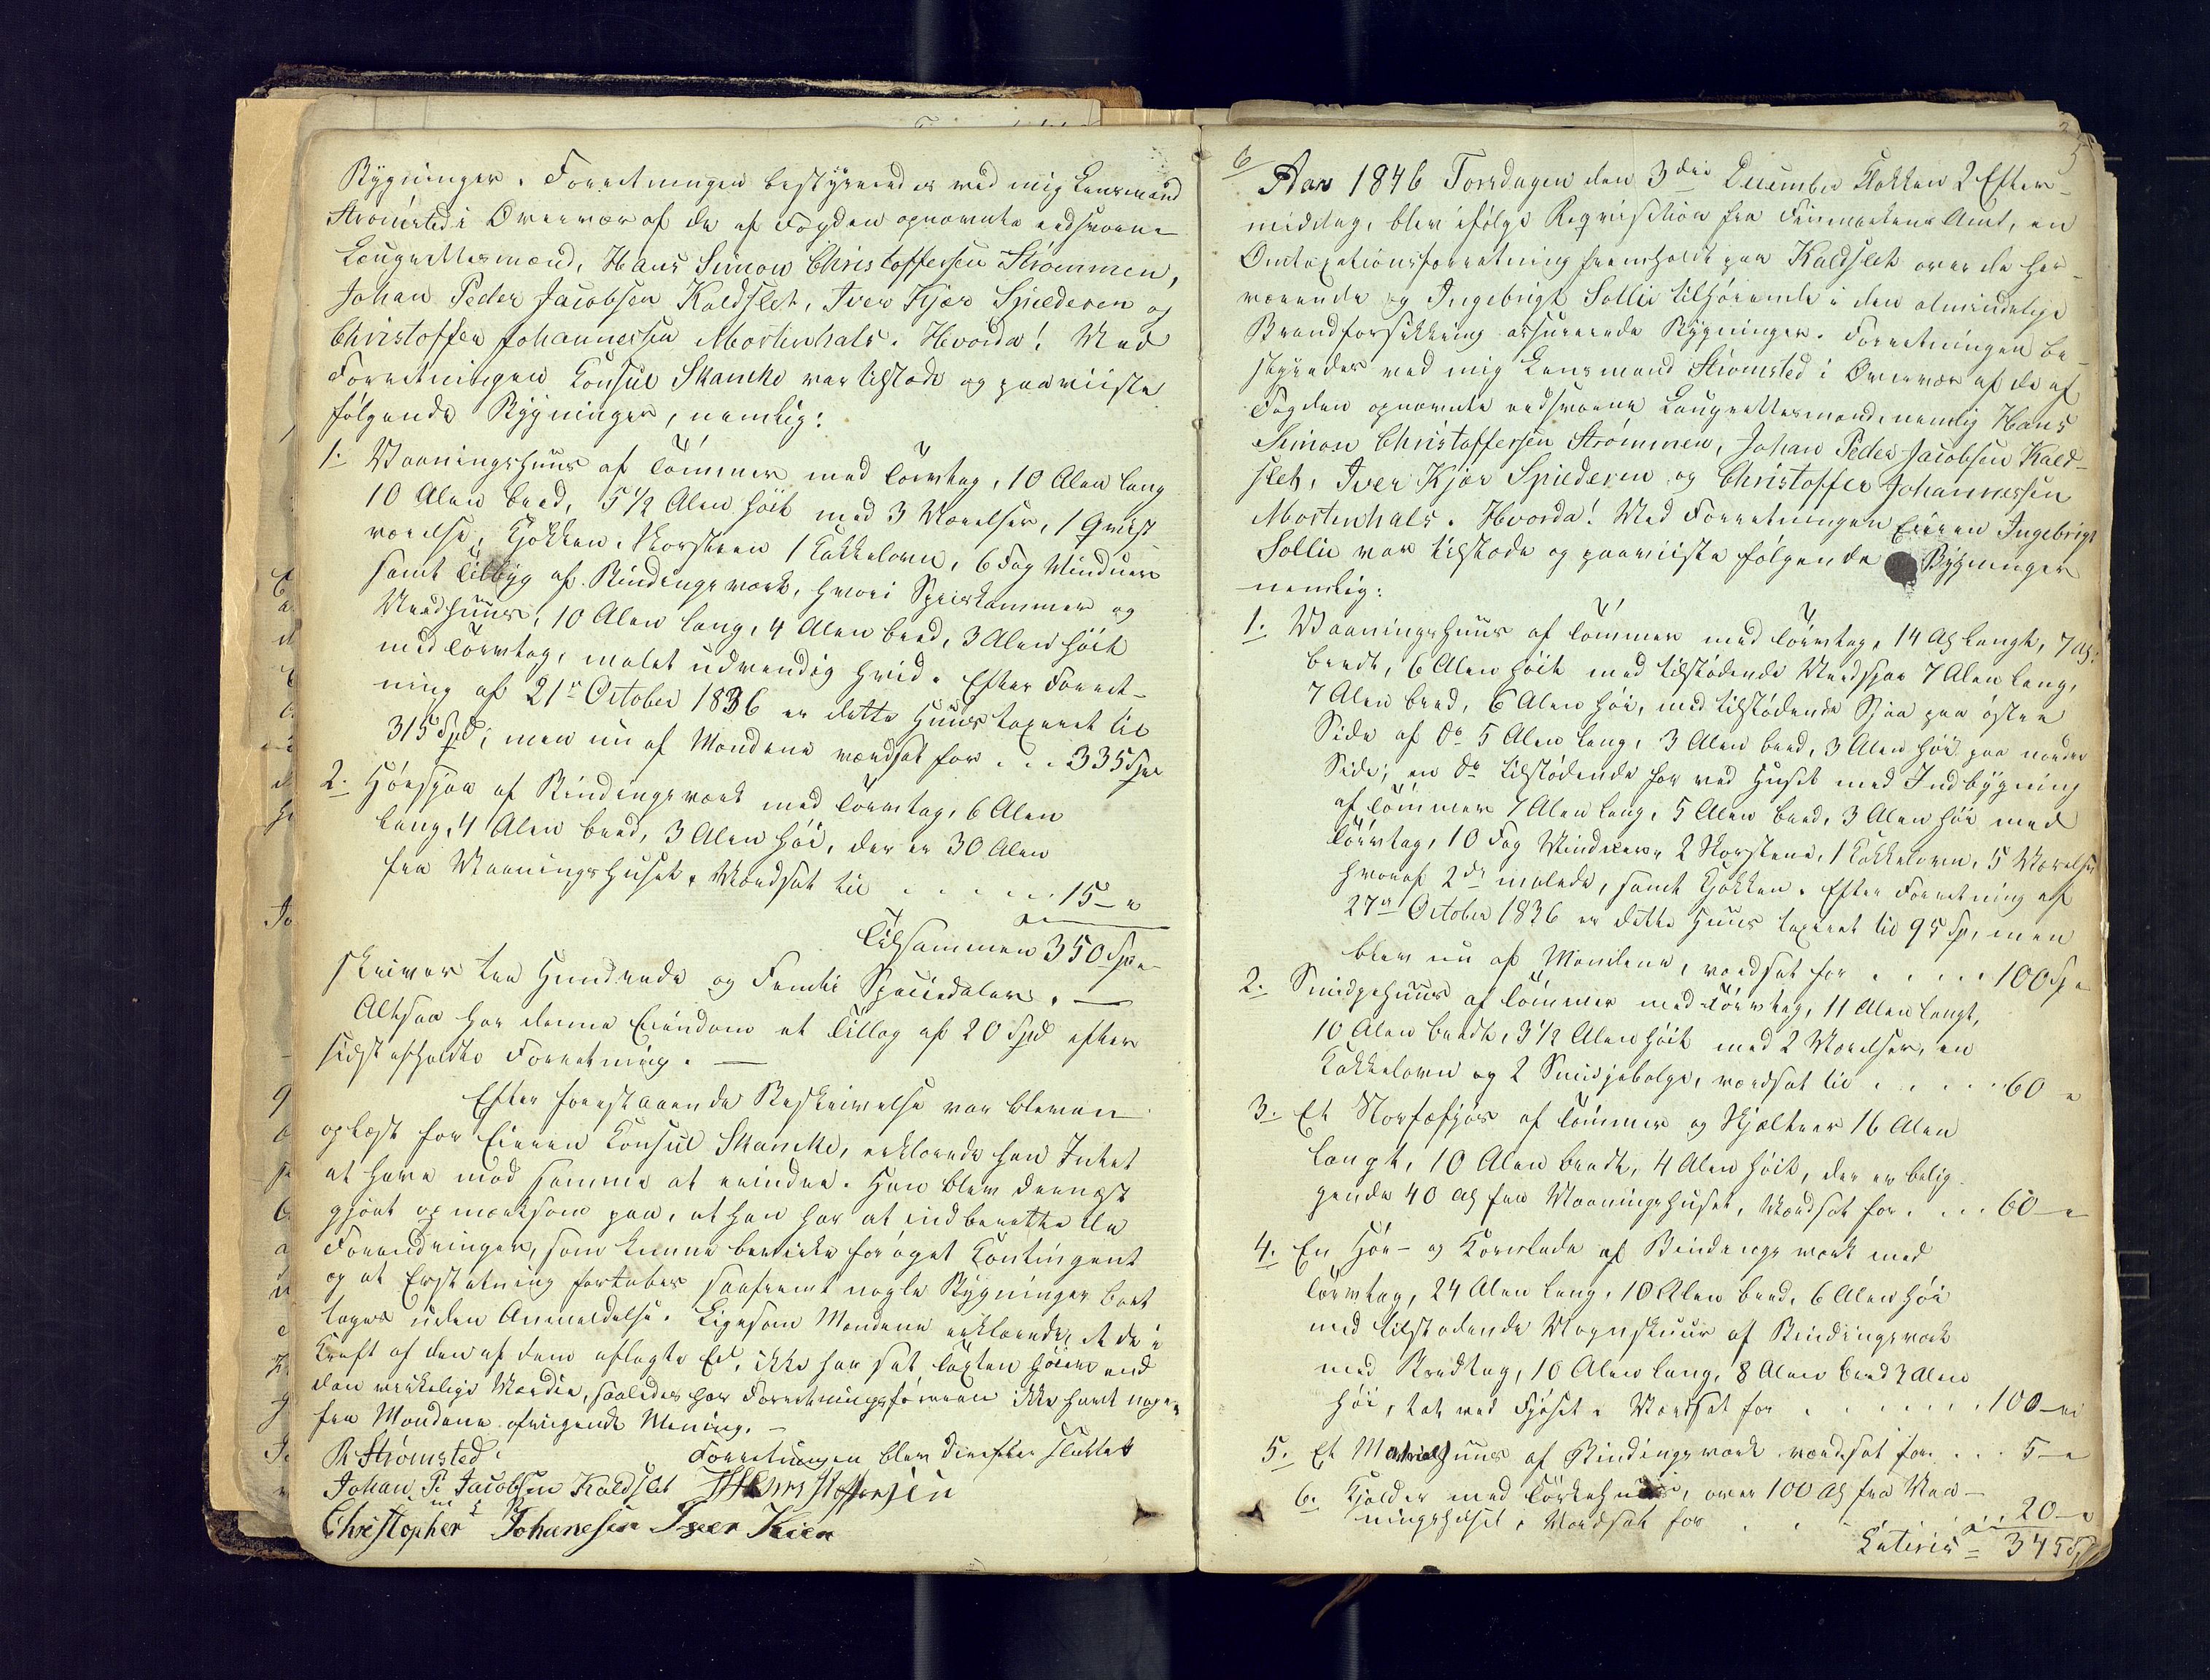 Bygninger. Forretningen bestyredes ved mig Lensmand
Strømsted i Overvær af de af Fogden opnævnte eedsvorne
Laugrettesmænd, Hans Simon Christoffersen Strømmen,
Johan Peder Jacobsen Kaldslet, Iver Kjær Spilderen og
Christoffer Johannessen Mortenhals. Hvorda! Med
Forretningen Konsul Skancke var tilstæde og paaviiste
følgende Bygninger, nemlig:
1. Vaaningshuus af Tømmer med Törvtag, 10 Alen lang
10 Alen bred, 5 1/2 Alen høit med 3 Værelser, 1 Qvist
værelse, Kjøkken, Skorsteen 1 Kakkelovn, 6 Fag Vinduer
samt Tilbyg af Bindingsværk, hvori Spiiskammer og
Vedhuus, 10 Alen lang, 4 Alen bred, 3 Alen høit
med Törvtag, malet udvendig hvid. Efter Forret-
ning af 21de October 1836 er dette Huus taxeret til
315 Spd; men nu af Mændene værdsat for . . . 335 Spd
2. Høeskjaa af Bindingsværk med Törvtag, 6 Alen
lang, 4 Alen bred, 3 Alen høi, der er 30 Alen
fra Vaaningshuset. Værdsat til . . . . . . 15 - "
Tilsammen 350 Spd
skriver tre Hundrede og Femti Speciedaler. —
Altsaa har denne Eiendom et Tillæg af 20 Spd efter
sidst afholdte Forretning. —
Efter forestaaende Beskrivelse var bleven
oplæst for Eieren Konsul Skancke, erklærede han Intet
at have mod samme at erindre. Han blev dernæst
gjort opmærksom paa, at han har at indberette de
Forandringer, som kunne bevirke forøget Kontingent
og at Erstatning fortabes saafremt nogle Bygninger bort
tages uden Anmeldelse. Ligesom Mændene erklærede, at de i
Kraft af den af dem aflagte Eed, ikke har sat Taxten høiere end
den virkelige Værdie, saaledes har Forretningsføreren ikke havt nogen
fra Mændene afvigende Mening. —
Forretningen blev derefter sluttet
R Strømsted
Johan P. Jacobsen Kaldslet HSChristoffersen
Christopher Johanesen Iver Kier
6
5
Aar 1846 Torsdagen den 3die December Klokken 2 Efter-
middag, blev ifølge Reqvisition fra Finmarkens Amt, en
Omtaxationsforretning fremholdt paa Kaldslet over de her-
værende og Ingebrigt Sollie tilhørende i den almindelige
Brandforsikkring assurerede Bygninger. Forretningen be-
styredes ved mig Lensmand Strømsted i Overvær af de af
Fogden opnævnte eedsvorne Laugrettesmænd, nemlig Hans
Simon Christoffersen Strømmen, Johan Peder Jacobsen Kald-
slet, Iver Kjær Spilderen og Christoffer Johannessen
Mortenhals. Hvorda! Med Forretningen Eieren Ingebrigt
Sollie var tilstæde og paaviiste følgende Bygninger
nemlig:
1. Vaaningshuus af Tømmer med Törvtag, 14 Al langt, 7 Al:
bredt, 6 Alen høit med tilstødende Vedskjaa 7 Alen lang,
7 Alen bred, 6 Alen høi, med tilstødende Skjaa paa østre
Side af do 5 Alen lang, 3 Alen bred, 3 Alen høi paa nordre
Side; en do tilstødende her ved Huset med Indbygning
af Tømmer 7 Alen lang, 5 Alen bred, 3 Alen høi med
Törvtag, 10 Fag Vinduer, 2 Skorstene, 1 Kakkelovn, 5 Værelser
hvoraf 2de malede, samt Kjøkken. Efter Forretning af
27de October 1836 er dette Huus taxeret til 95 Sp, men
blev nu af Mændene, værdsat for . . . . . 100 Sp "
2. Smidgehuus af Tømmer med Törvtag, 11 Alen langt,
10 Alen bredt, 3 1/2 Alen høit med 2 Værelser, en
Kakkelovn og 2 Smidjebælge, værdsat til . . . . . 60 "
3. Et Storfæfjøs af Tømmer og Skjeltrær 16 Alen
langt, 10 Alen bredt, 4 Alen høit, der er belig-
gende 40 Al fra Vaaningshuset, Værdsat for . . . 60 - "
4. En Høe- og Kornlade af Bindingsværk med
Törvtag, 24 Alen lang, 10 Alen bred, 6 Alen høi
med tilstødende Vognskuur af Bindingsværk
med Bredtag, 10 Alen lang, 8 Alen bred 3 Alen
høi, tæt ved Fjøset. Værdsat for . . . . . . 100 - "
5. Et Materialhuus af Bindingsværk værdsat for . . . 5 - "
6. Kjelder med Törkehuus, over 100 Al fra Vaa-
ningshuset, Værdsat for . . . 20 - "
Lateris = 345 Sp